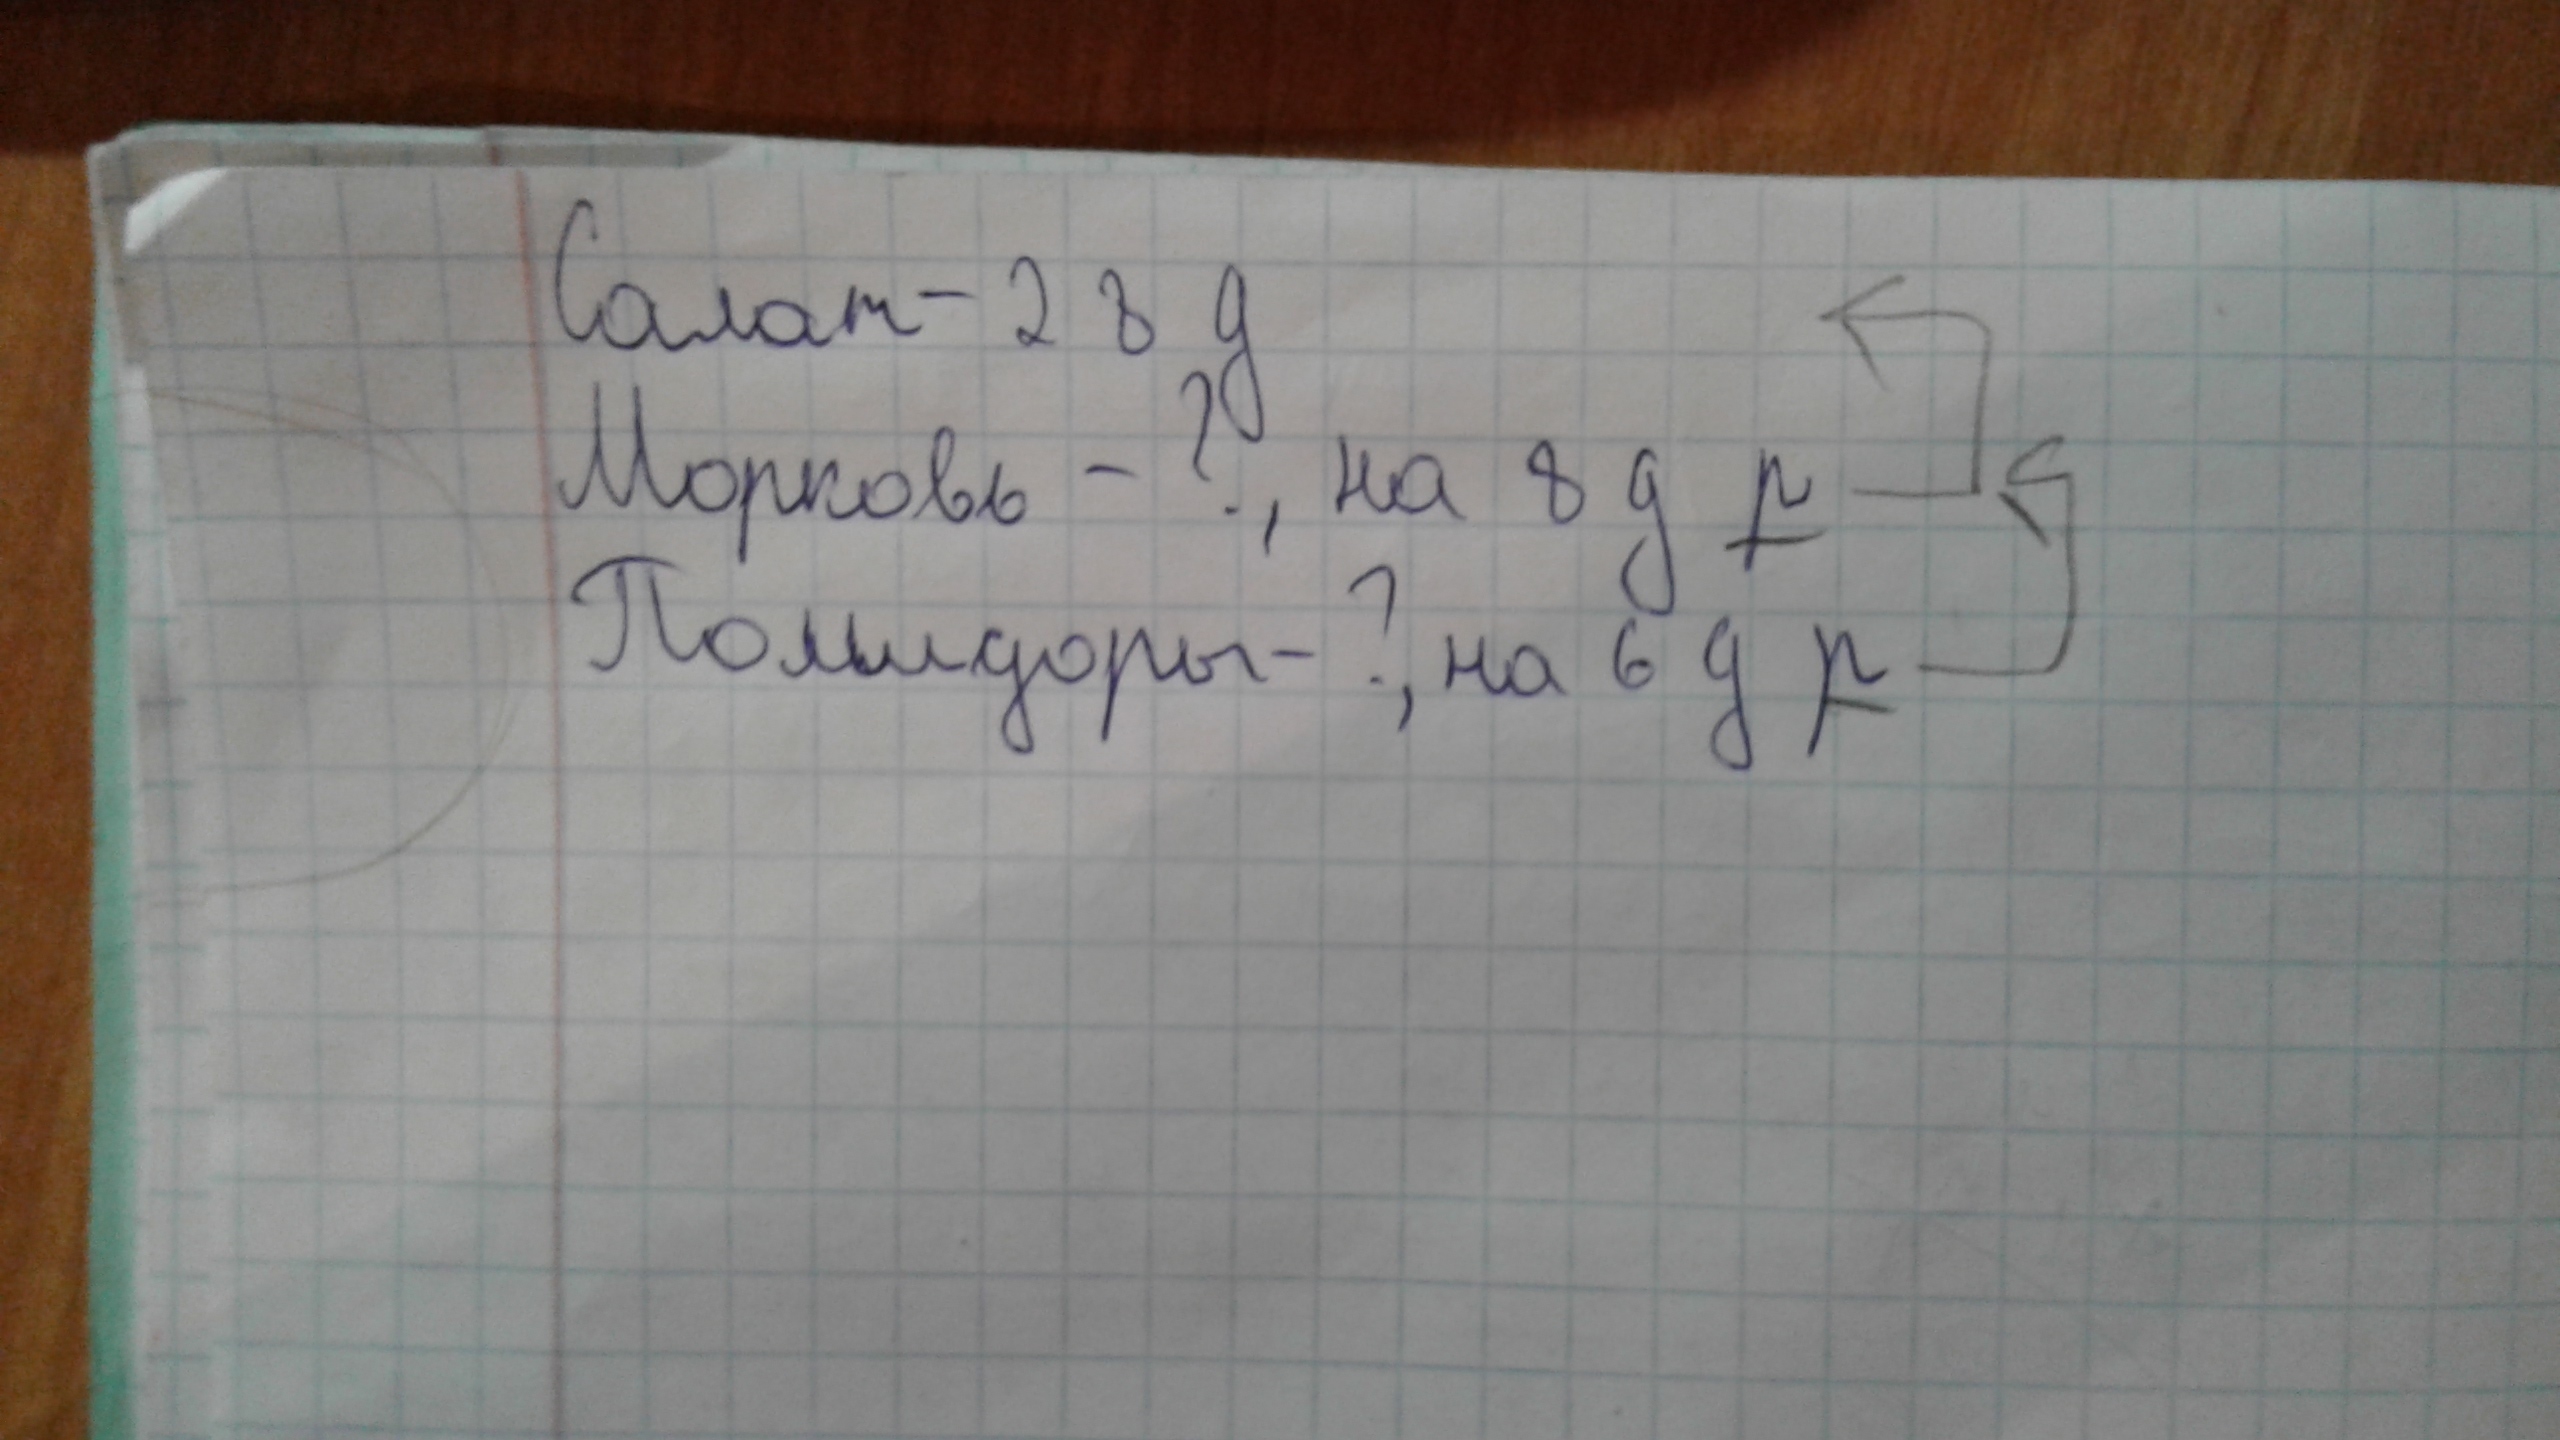 Салат - 28 д
Морковь - ?, на 8 д р
Помидоры - ?, на 6 д р